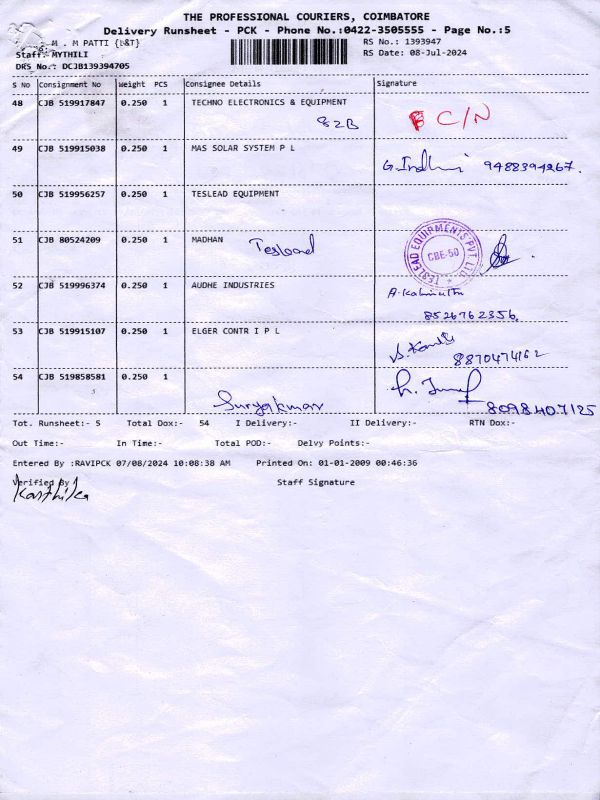 THE PROFESSIONAL COURIERS, COIMBATORE
Delivery Runsheet - PCK - Phone No.:0422-3505555 - Page No.:5
M . M PATTI {L&T} RS No.: 1393947
Staff: MYTHILI RS Date: 08-Jul-2024
DRS No.: DCJB139394705
S No Consignment No Weight PCS Consignee Details Signature
48 CJB 519917847 0.250 1 TECHNO ELECTRONICS & EQUIPMENT
82B C/N
49 CJB 519915038 0.250 1 MAS SOLAR SYSTEM P L
9488394267.
50 CJB 519956257 0.250 1 TESLEAD EQUIPMENT
TESLEAD EQUIPMENTS PVT. LTD. CBE-50
51 CJB 80524209 0.250 1 MADHAN Teslead
52 CJB 519996374 0.250 1 AUDHE INDUSTRIES
8526762356.
53 CJB 519915107 0.250 1 ELGER CONTR I P L
8870474162
54 CJB 519858581 0.250 1
Suryakumar 8098407125
Tot. Runsheet:- 5 Total Dox:- 54 I Delivery:- II Delivery:- RTN Dox:-
Out Time:- In Time:- Total POD:- Delvy Points:-
Entered By :RAVIPCK 07/08/2024 10:08:38 AM Printed On: 01-01-2009 00:46:36
Verified By Staff Signature
Karthika